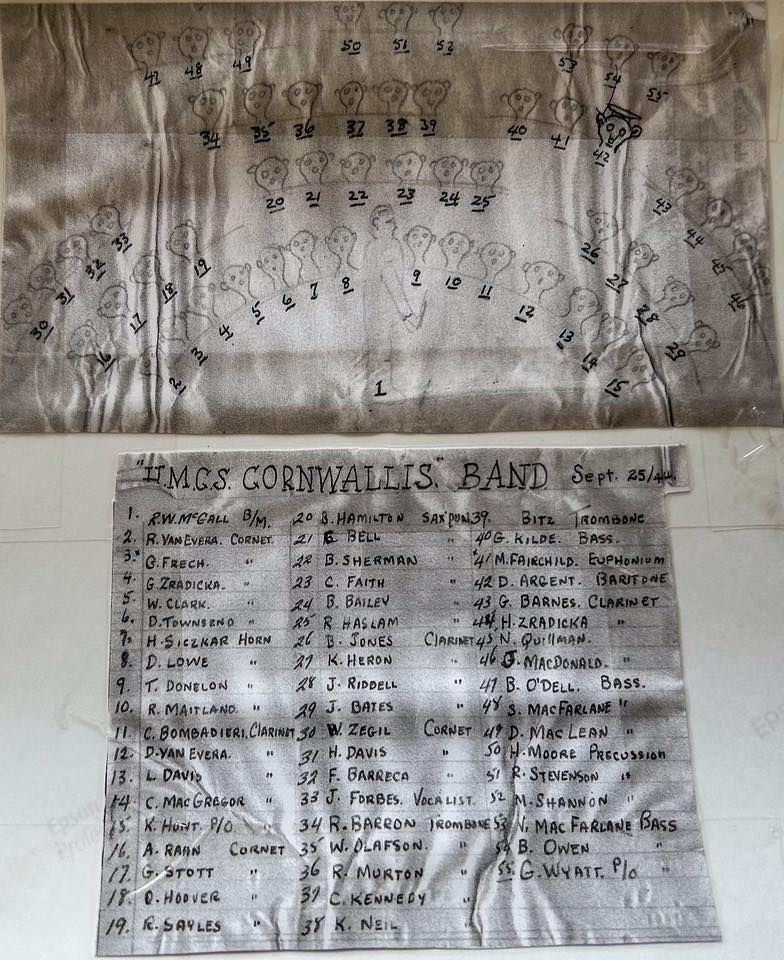 50 51 52
47 48 49 53 54 55
34 35 36 37 38 39 40 41 42
20 21 22 23 24 25
43 44 45 46
33 32 31 30
19 18 17 16
26 27 28 29
2 3 4 5 6 7 8 9 10 11 12 13 14 15
1
"H.M.C.S. CORNWALLIS." BAND Sept. 25/44.
1. R.W. McCALL B/M. 20 B. HAMILTON SAX'PUN 39. BITZ TROMBONE
2. R. VANEVERA. CORNET. 21 BELL " 40 G. KILDE. BASS.
3. G. FRECH. " 22 B. SHERMAN " 41 M. FAIRCHILD. EUPHONIUM
4. G. ZRADICKA. " 23 C. FAITH " 42 D. ARGENT. BARITONE
5. W. CLARK. " 24 B. BAILEY " 43 G. BARNES. CLARINET
6. D. TOWNSEND " 25 R. HASLAM " 44 H. ZRADICKA "
7. H. SICZKAR HORN 26 B. JONES CLARINET 45 N. QUILLMAN.
8. D. LOWE " 27 K. HERON " 46 J. MACDONALD. "
9. T. DONELON " 28 J. RIDDELL " 47 B. O'DELL. BASS.
10. R. MAITLAND. " 29 J. BATES " 48 S. MACFARLANE "
11. C. BOMBADIERI. CLARINET 30 W. ZEGIL CORNET 49 D. MAC LEAN "
12. D. VAN EVERA. " 31 H. DAVIS " 50 H. MOORE PRECUSSION
13. L. DAVIS " 32 F. BARRECA " 51 R. STEVENSON "
14. C. MACGREGOR " 33 J. FORBES. VOCALIST. 52 M. SHANNON "
15. K. HUNT. P/O " 34 R. BARRON TROMBONE 53 V. MACFARLANE BASS
16. A. RAHN CORNET 35 W. OLAFSON. " 54 B. OWEN "
17. G. STOTT " 36 R. MURTON " 55. G. WYATT. P/O "
18. D. HOOVER " 37 C. KENNEDY "
19. R. SAYLES " 38 K. NEIL "